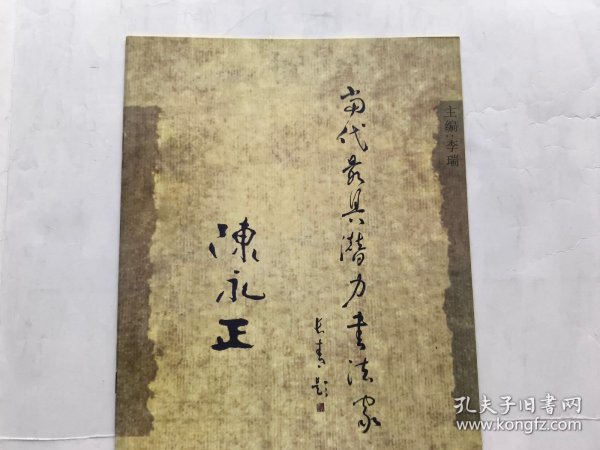 主编：李瑞
当代最具潜力书法家
长青题
陳永正
孔夫子旧书网
www.kongfz.com